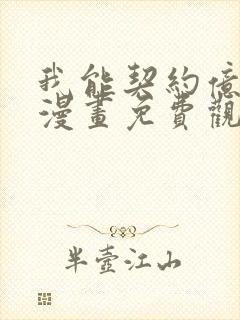 我能契約億
漫畫免費觀
半壺江山